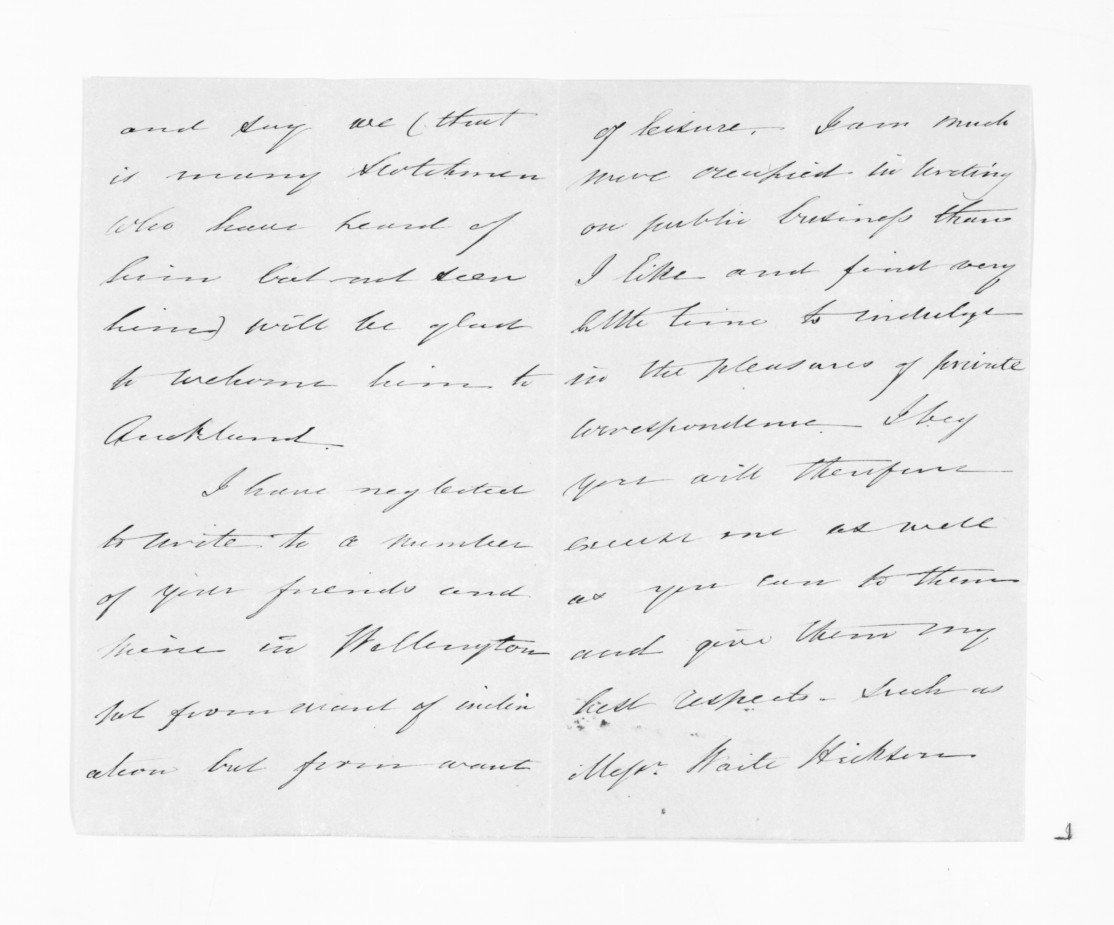 and say we (that
is many Scotchmen
who have heard of
him but not seen
him) will be glad
to welcome him to
Auckland.
I have neglected
to write to a number
of your friends and
mine in Wellington
not from want of inclin
ation but from want
of leisure. I am much
more occupied in writing
on public business than
I like and find very
little time to indulge
in the pleasures of private
correspondence. I beg
you will therefore
excuse me as well
as you can to them
and give them my
best respects - such as
Messrs. Waite Hickson